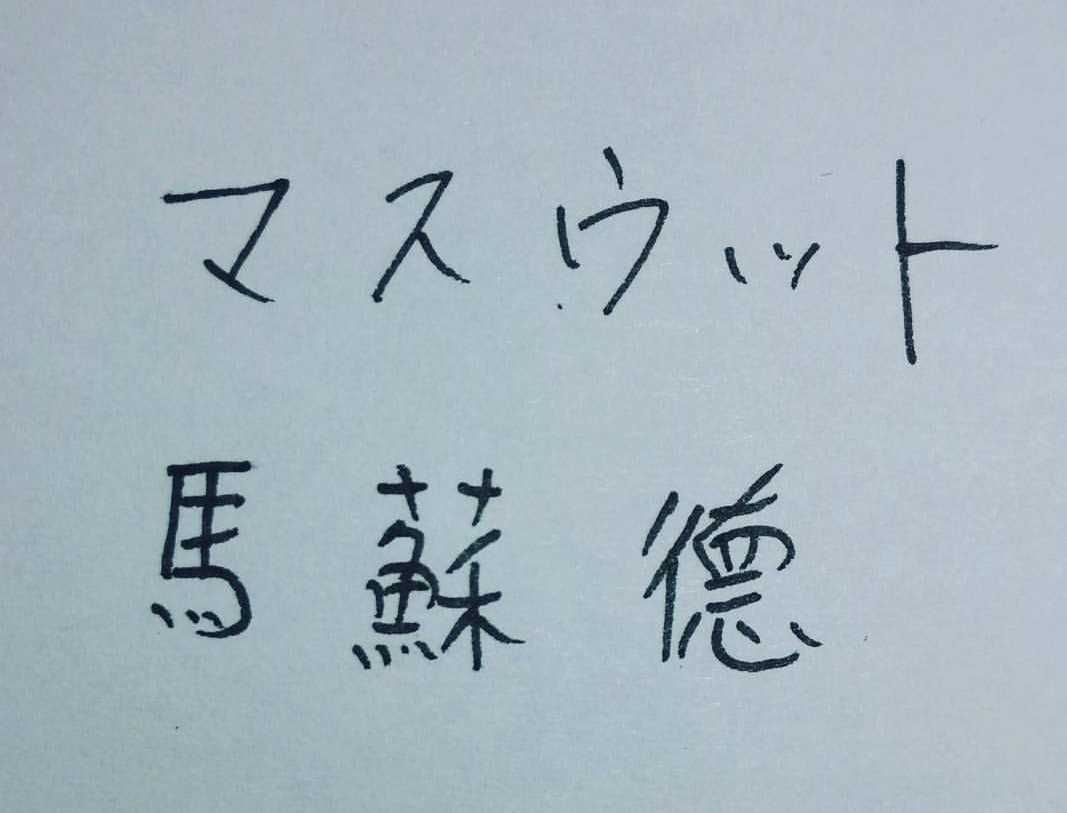 マスウット
馬蘇德